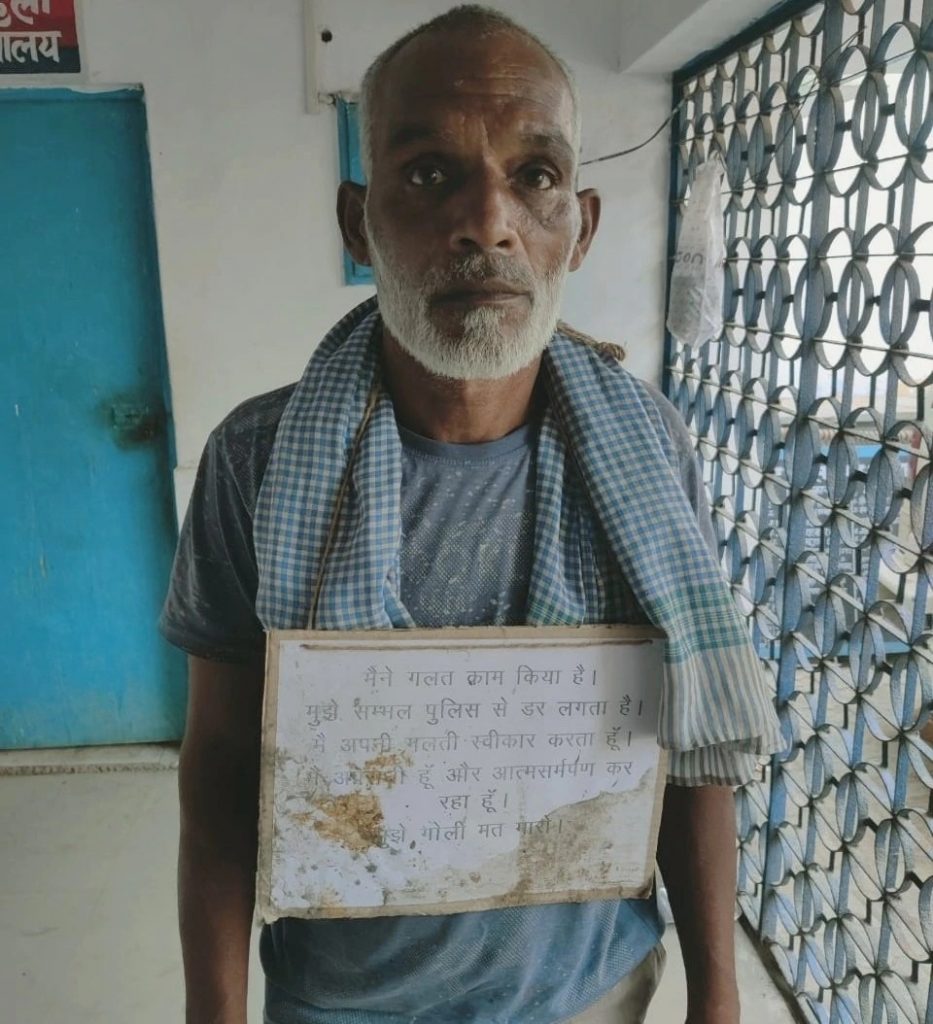 ालय
मैने गलत काम किया है।
मुझे सम्भल पुलिस से डर लगता है।
मै अपनी गलती स्वीकार करता हूँ।
मै अपराधी हूँ और आत्मसर्मपण कर
रहा हूँ।
मुझे गोली मत मारो।